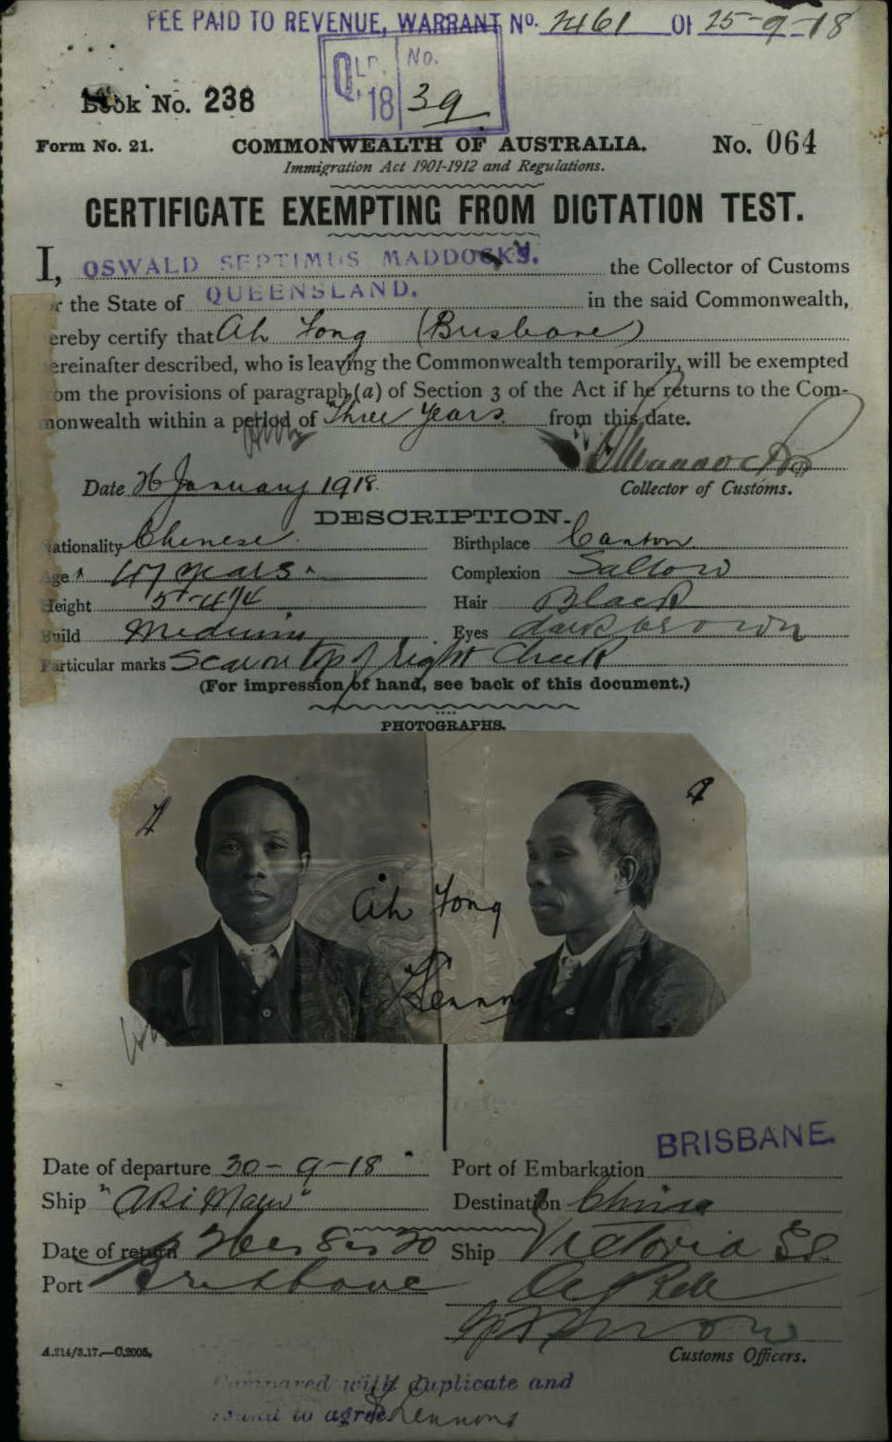 FEE PAID TO REVENUE, WARRANT No. 2461 Of 25-9-18
QLD. No.
18 39
Book No. 238
Form No. 21. COMMONWEALTH OF AUSTRALIA. No. 064
Immigration Act 1901-1912 and Regulations.
CERTIFICATE EXEMPTING FROM DICTATION TEST.
I, OSWALD SEPTIMUS MADDOCKS. the Collector of Customs
r the State of QUEENSLAND. in the said Commonwealth,
ereby certify that Ah Fong (Brisbane)
ereinafter described, who is leaving the Commonwealth temporarily, will be exempted
om the provisions of paragraph (a) of Section 3 of the Act if he returns to the Com-
monwealth within a period of Three Years from this date.
Date 26 January 1918. Collector of Customs.
DESCRIPTION.
ationality Chinese. Birthplace Canton.
ge 47 years Complexion Sallow
Height 5'-4¼ Hair Black
Build Medium Eyes dark brown
Particular marks Scar on top of right cheek
(For impression of hand, see back of this document.)
PHOTOGRAPHS.
Ah Fong
BRISBANE.
Date of departure 30-9-18 Port of Embarkation
Ship "Aki Maru" Destination China
Date of return Ship Victoria
Port Brisbane
A.214/3.17.—C.2005. Customs Officers.
Compared with duplicate and
found to agree. Lennons